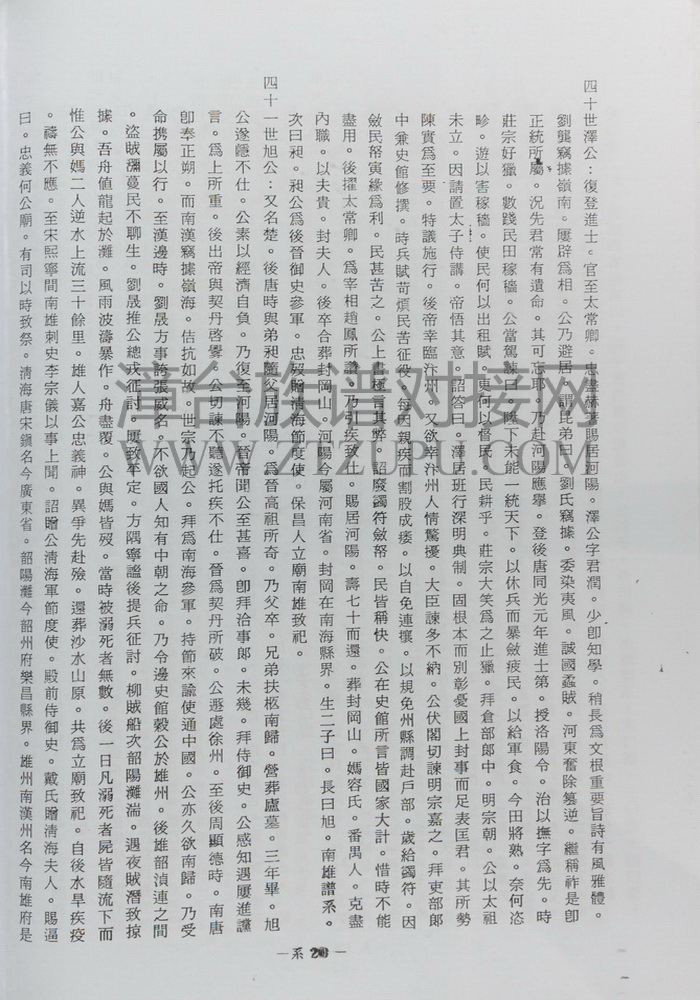 四十世澤公：復登進士。官至太常卿。忠盡赫著賜居河陽。澤公字君潤。少卽知學。稍長爲文根重要旨詩有風雅體。
劉龑竊據嶺南。屢辟爲相。公乃遊居。謂昆弟曰。劉氏竊據。委染夷風。誠國蟊賊。河東奮除篡逆。繼稱祚是卽
正統所屬。況先君常有遺命。其可忘耶。乃赴河陽應舉。登後唐同光元年進士第。授洛陽令。治以撫字爲先。時
莊宗好獵。數踐民田稼穡。公當駕諫曰。陛下未能一統天下。以休兵而暴斂疲民。以給軍食。今田將熟。奈何恣
畋。遊以害稼穡。使民何以出租賦。吏何以督民。民耕乎。莊宗大笑爲之止獵。拜倉部郎中。明宗朝。公以太祖
未立。因請置太子侍講。帝悟其意。詔答曰。澤居班行深明典制。固根本而別彰憂國上封事而足表匡君。其所勢
陳實爲至要。特議施行。後帝幸臨汴州。又欲幸汴州人情驚擾。大臣諫多不納。公伏閣切諫明宗嘉之。拜吏部郎
中兼史館修撰。時兵賦苛煩民苦征役。每因親疾而割股成痿。以自免連壤。以規免州縣調赴戶部。歲給蠲符。因
斂民帑寅緣爲利。民甚苦之。公上書極言其弊。詔廢蠲符斂帑。民皆稱快。公在史館所言皆國家大計。惜時不能
盡用。後擢太常卿。爲宰相趙鳳所讚。乃引疾致仕。賜居河陽。壽七十而還。葬封岡山。媽容氏。番禺人。克盡
內職。以夫貴。封夫人。後卒合葬封岡山。河陽今屬河南省。封岡在南海縣界。生二子曰。長曰旭。南雄譜系。
次曰昶。昶公爲後晉御史參軍。忠歿贈清海節度使。保昌人立廟南雄致祀。
四十一世旭公：又名楚。後唐時與弟昶隨父居河陽。爲晉高祖所奇。乃父卒。兄弟扶柩南歸。營葬廬墓。三年畢。旭
公遂隱不仕。公素以經濟自負。乃復至河陽。晉帝聞公至甚喜。卽拜洽事郎。未幾。拜侍御史。公感知遇屢進讜
言。爲上所重。後出帝與契丹啓釁。公切諫不聽遂托疾不仕。晉爲契丹所破。公遯處徐州。至後周顯德時。南唐
卽奉正朔。而南漢竊據嶺海。佶抗如故。世宗乃起公。拜爲南海參軍。持節來諭使通中國。公亦久欲南歸。乃受
命携屬以行。至漢邊時。劉晟方事誇張威名。不欲國人知有中朝之命。乃令邊史館穀公於雄州。後雄韶湞連之間
。盜賊瀰蔓民不聊生。劉晟推公總戎征討。厩致平定。方隅寧謐後提兵征討。柳賊船次韶陽灘湍。遇夜賊潛致掠
據。吾舟値龍起於灘。風雨波濤暴作。舟盡覆。公與媽皆歿。當時被溺死者無數。後一日凡溺死者屍皆隨流下而
惟公與媽二人逆水上流三十餘里。雄人嘉公忠義神。異爭先赴殮。還葬沙水山原。共爲立廟致祀。自後水旱疾疫
。禱無不應。至宋熙寧間南雄刺史李宗儀以事上聞。詔贈公淸海軍節度使。殿前侍御史。戴氏贈淸海夫人。賜逼
曰。忠義何公廟。有司以時致祭。淸海唐宋鎭名今廣東省。韶陽灘今韶州府樂昌縣界。雄州南漢州名今南雄府是
— 系 20 —
漳台族譜对接网
WWW.ZTZUPU.COM